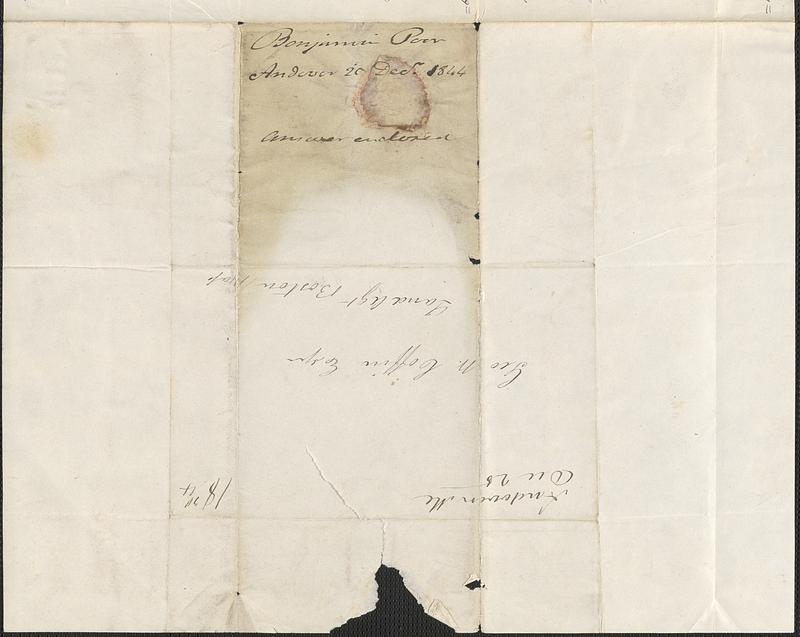 Benjamin Poor
Andover 20 Decr. 1844
Answer enclosed
Andover Me
Dec 25
18 3/4
Geo W. Coffin Esqr
Land Agt Boston Mass